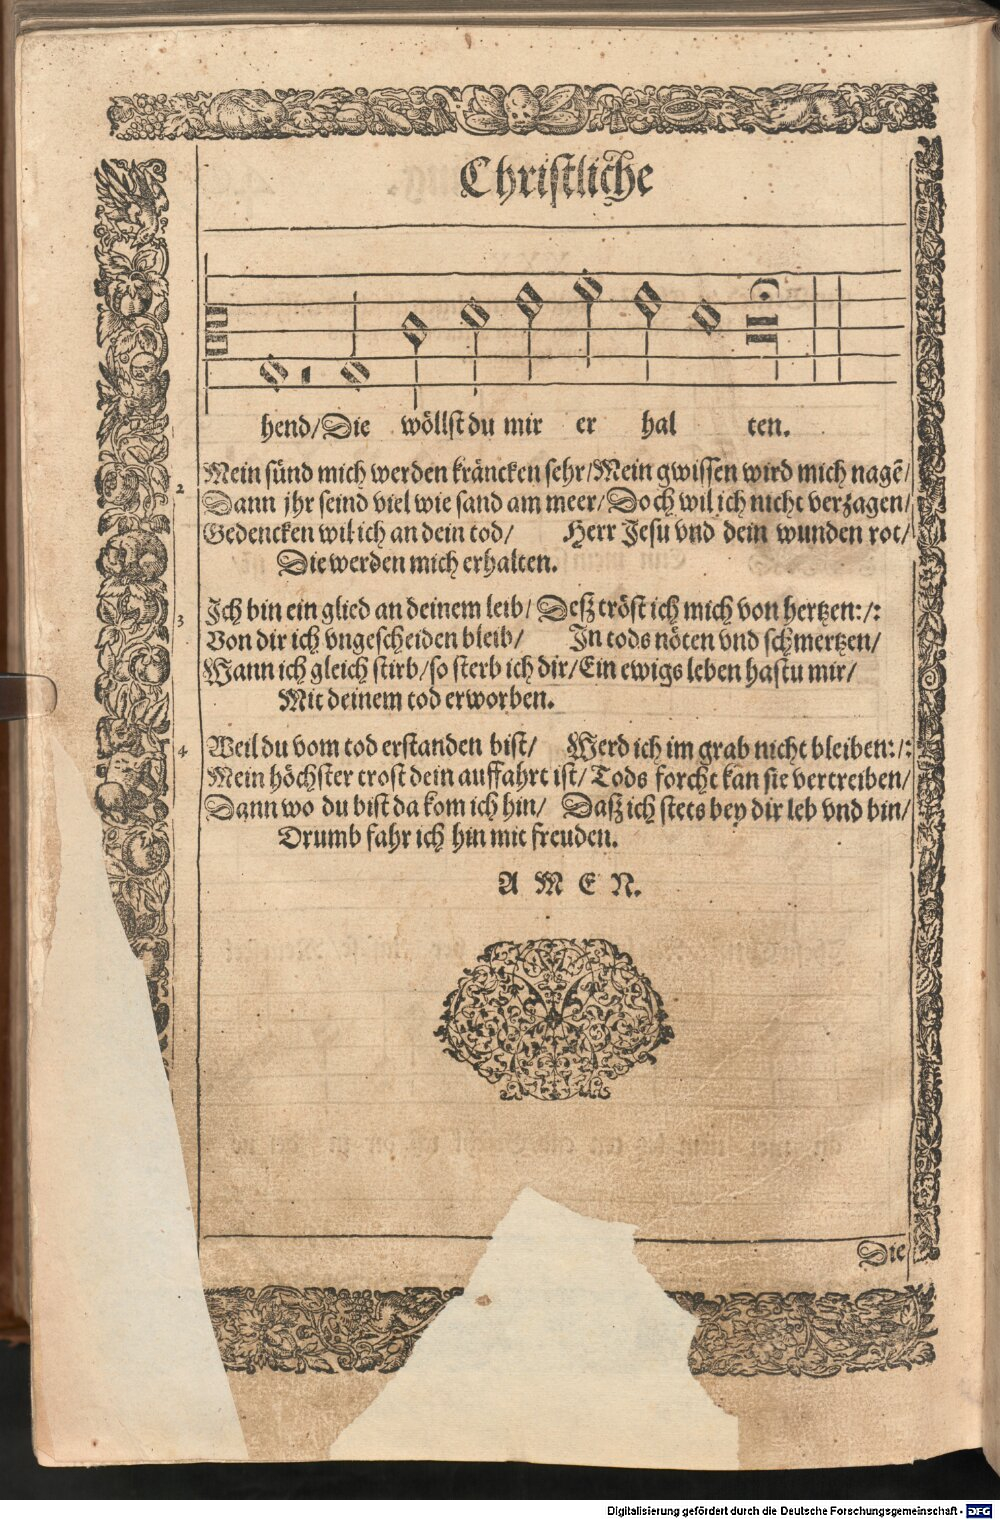 Christliche
hend/Die wöllst du mir er hal ten.
2 Mein sünd mich werden kräncken sehr/Mein gwissen wird mich nagē/
Dann jhr seind viel wie sand am meer/Doch wil ich nicht verzagen/
Gedencken wil ich an dein tod/ Herr Jesu vnd dein wunden rot/
Die werden mich erhalten.
3 Ich bin ein glied an deinem leib/ Deß tröst ich mich von hertzen:/:
Von dir ich vngescheiden bleib/ In tods nöten vnd schmertzen/
Wann ich gleich stirb/so sterb ich dir/Ein ewigs leben hastu mir/
Mit deinem tod erworben.
4 Weil du vom tod erstanden bist/ Werd ich im grab nicht bleiben:/:
Mein höchster trost dein auffahrt ist/Tods forcht kan sie vertreiben/
Dann wo du bist da kom ich hin/ Daß ich stets bey dir leb vnd bin/
Drumb fahr ich hin mit freuden.
A M E N.
Die
Digitalisierung gefördert durch die Deutsche Forschungsgemeinschaft - DFG